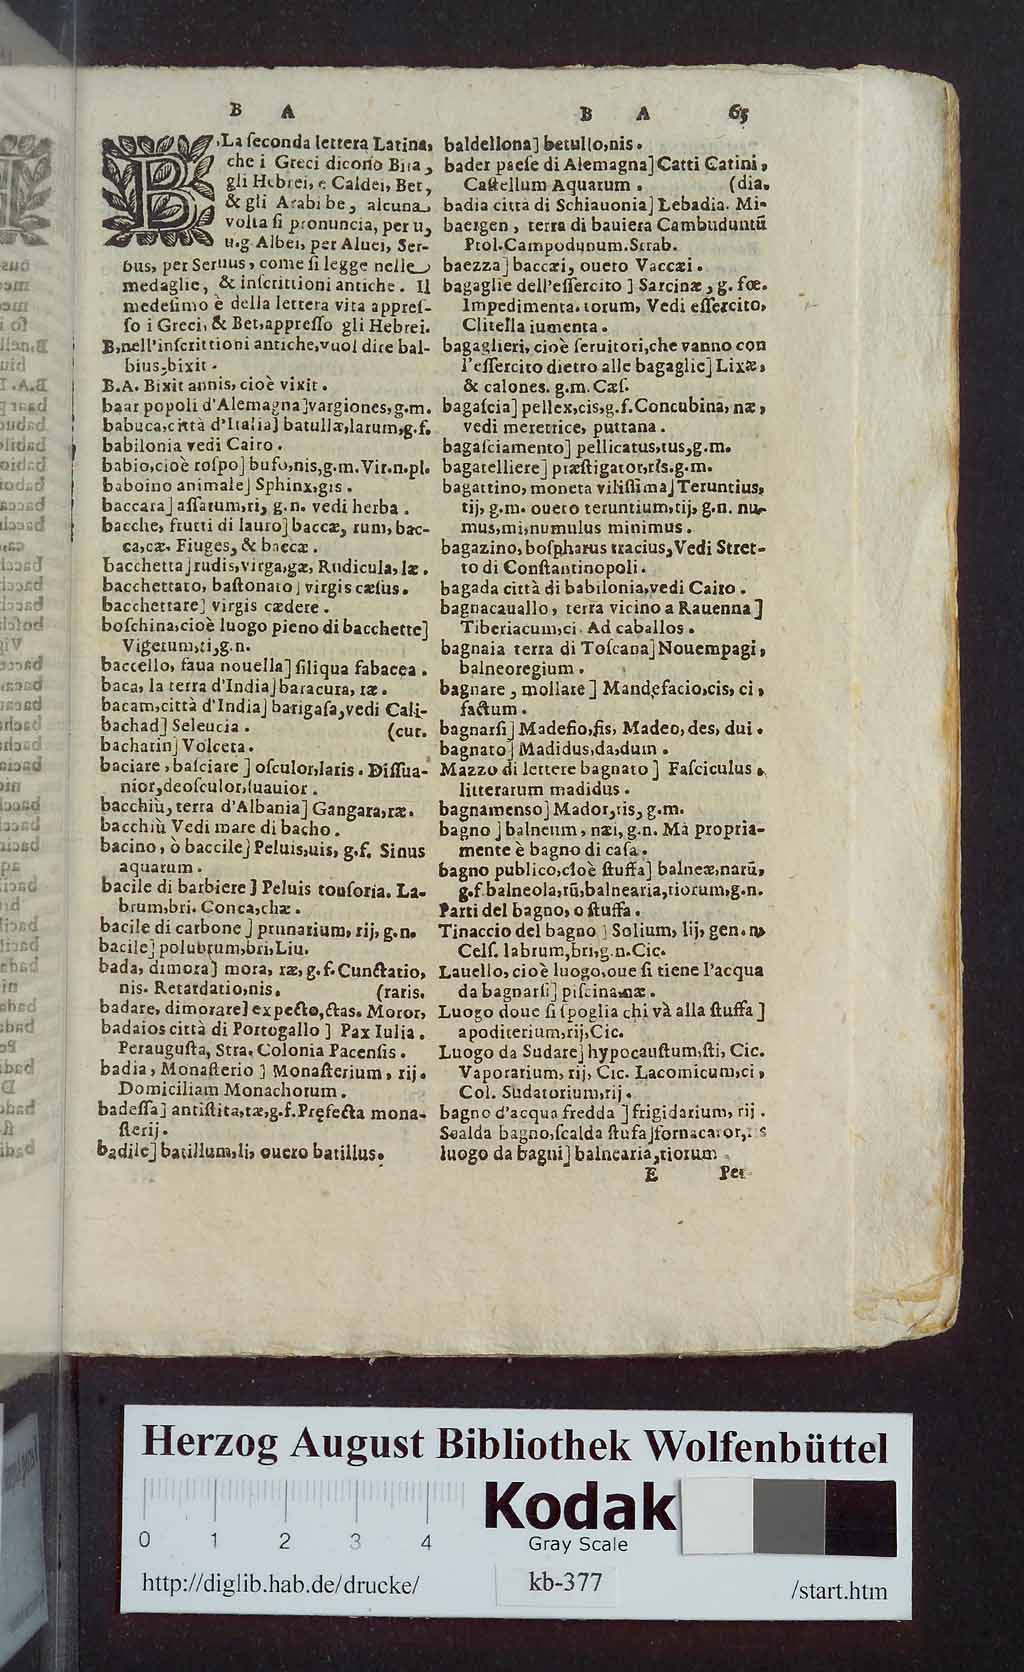 B A
B A 65
B,La ſeconda lettera Latina,
che i Greci dicono Bita,
gli Hebrei, e Caldei, Bet,
& gli Arabi be, alcuna
volta ſi pronuncia, per u,
u.g. Albei, per Aluei, Ser-
bus, per Seruus, come ſi legge nelle
medaglie, & inſcrittioni antiche. Il
medeſimo è della lettera vita appreſ-
ſo i Greci, & Bet, appreſſo gli Hebrei.
B, nell'inſcrittioni antiche, vuol dire bal-
bius, bixit.
B.A. Bixit annis, cioè vixit.
baar popoli d'Alemagna]vargiones, g.m.
babuca, città d'Italia] batullæ, larum, g.f.
babilonia vedi Cairo.
babio, cioè roſpo] bufo, nis, g.m. Vir.n.pl.
baboino animale] Sphinx, gis.
baccara] aſſarum, ri, g.n. vedi herba.
bacche, frutti di lauro] baccæ, rum, bac-
ca, cæ. Fiuges, & baccæ.
bacchetta] rudis, virga, gæ, Rudicula, læ.
bacchettato, baſtonato] virgis cæſus.
bacchettare] virgis cædere.
boſchina, cioè luogo pieno di bacchette]
Vigetum, ti, g.n.
baccello, faua nouella] ſiliqua fabacea.
baca, la terra d'India] baracura, ræ.
bacam, città d'India] barigaſa, vedi Cali-
bachad] Seleucia. (cut.
bacharin] Volceta.
baciare, baſciare] oſculor, laris. Diſſua-
nior, deoſculor, ſuauior.
bacchiù, terra d'Albania] Gangara, ræ.
bacchiù Vedi mare di bacho.
bacino, ò baccile] Peluis, uis, g.f. Sinus
aquarum.
bacile di barbiere] Peluis tonſoria. La-
brum, bri. Conca, chæ.
bacile di carbone] prunarium, rij, g.n.
bacile] polubrum, bri, Liu.
bada, dimora] mora, ræ, g.f. Cunctatio,
nis. Retardatio, nis. (raris.
badare, dimorare] expecto, ctas. Moror,
badaios città di Portogallo] Pax Iulia.
Peraugusta, Stra. Colonia Pacenſis.
badia, Monaſterio] Monaſterium, rij.
Domiciliam Monachorum.
badeſſa] antiſtita, tæ, g.f. Pręfecta mona-
ſterij.
badile] batillum, li, ouero batillus.
baldellona] betullo, nis.
bader paeſe di Alemagna] Catti Catini,
Caſtellum Aquarum. (dia.
badia città di Schiauonia] Lebadia. Mi-
baergen, terra di bauiera Cambuduntū
Ptol. Campodunum. Strab.
baezza] baccæi, ouero Vaccæi.
bagaglie dell'eſſercito] Sarcinæ, g. fœ.
Impedimenta. torum, Vedi eſſercito,
Clitella iumenta.
bagaglieri, cioè ſeruitori, che vanno con
l'eſſercito dietro alle bagaglie] Lixæ,
& calones. g.m. Cæſ.
bagaſcia] pellex, cis, g.f. Concubina, næ,
vedi meretrice, puttana.
bagaſciamento] pellicatus, tus, g.m.
bagatelliere] præſtigator, ris. g.m.
bagattino, moneta viliſſima] Teruntius,
tij, g.m. ouero teruntium, tij, g.n. nu-
mus, mi, numulus minimus.
bagazino, boſpharus tracius, Vedi Stret-
to di Conſtantinopoli.
bagada città di babilonia, vedi Cairo.
bagnacauallo, terra vicino a Rauenna]
Tiberiacum, ci. Ad caballos.
bagnaia terra di Toſcana] Nouempagi,
balneoregium.
bagnare, mollare] Mandefacio, cis, ci,
factum.
bagnarſi] Madefio, fis, Madeo, des, dui.
bagnato] Madidus, da, dum.
Mazzo di lettere bagnato] Faſciculus
litterarum madidus.
bagnamenso] Mador, ris, g.m.
bagno] balneum, næi, g.n. Mà propria-
mente è bagno di caſa.
bagno publico, cioè ſtuffa] balneæ, narū,
g.f. balneola, rū, balnearia, riorum, g.n.
Parti del bagno, o ſtuffa.
Tinaccio del bagno] Solium, lij, gen.n.
Celſ. labrum, bri, g.n. Cic.
Lauello, cioè luogo, oue ſi tiene l'acqua
da bagnarſi] piſcina, næ.
Luogo doue ſi ſpoglia chi và alla ſtuffa]
apoditerium, rij, Cic.
Luogo da Sudare] hypocauſtum, ſti, Cic.
Vaporarium, rij, Cic. Lacomicum, ci,
Col. Sudatorium, rij.
bagno d'acqua fredda] frigidarium, rij.
Scalda bagno, ſcalda ſtufa] fornacator, ris
luogo da bagni] balnearia, riorum
E Per
Herzog August Bibliothek Wolfenbüttel
0 1 2 3 4
Kodak
Gray Scale
http://diglib.hab.de/drucke/
kb-377
/start.htm